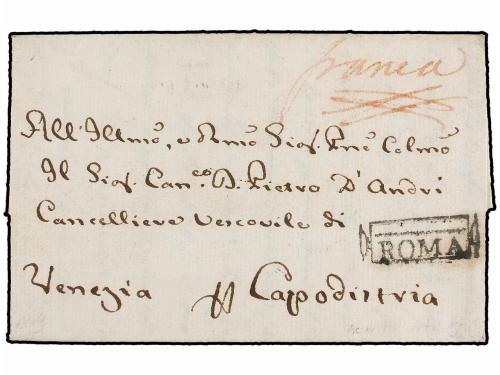 franca
All'Illmo, e Rmo Sigr. Prne Colmo
Il Sigr. Canco. D. Pietro D'Andri
Cancelliere Vescovile di
ROMA
Venezia Capodistria